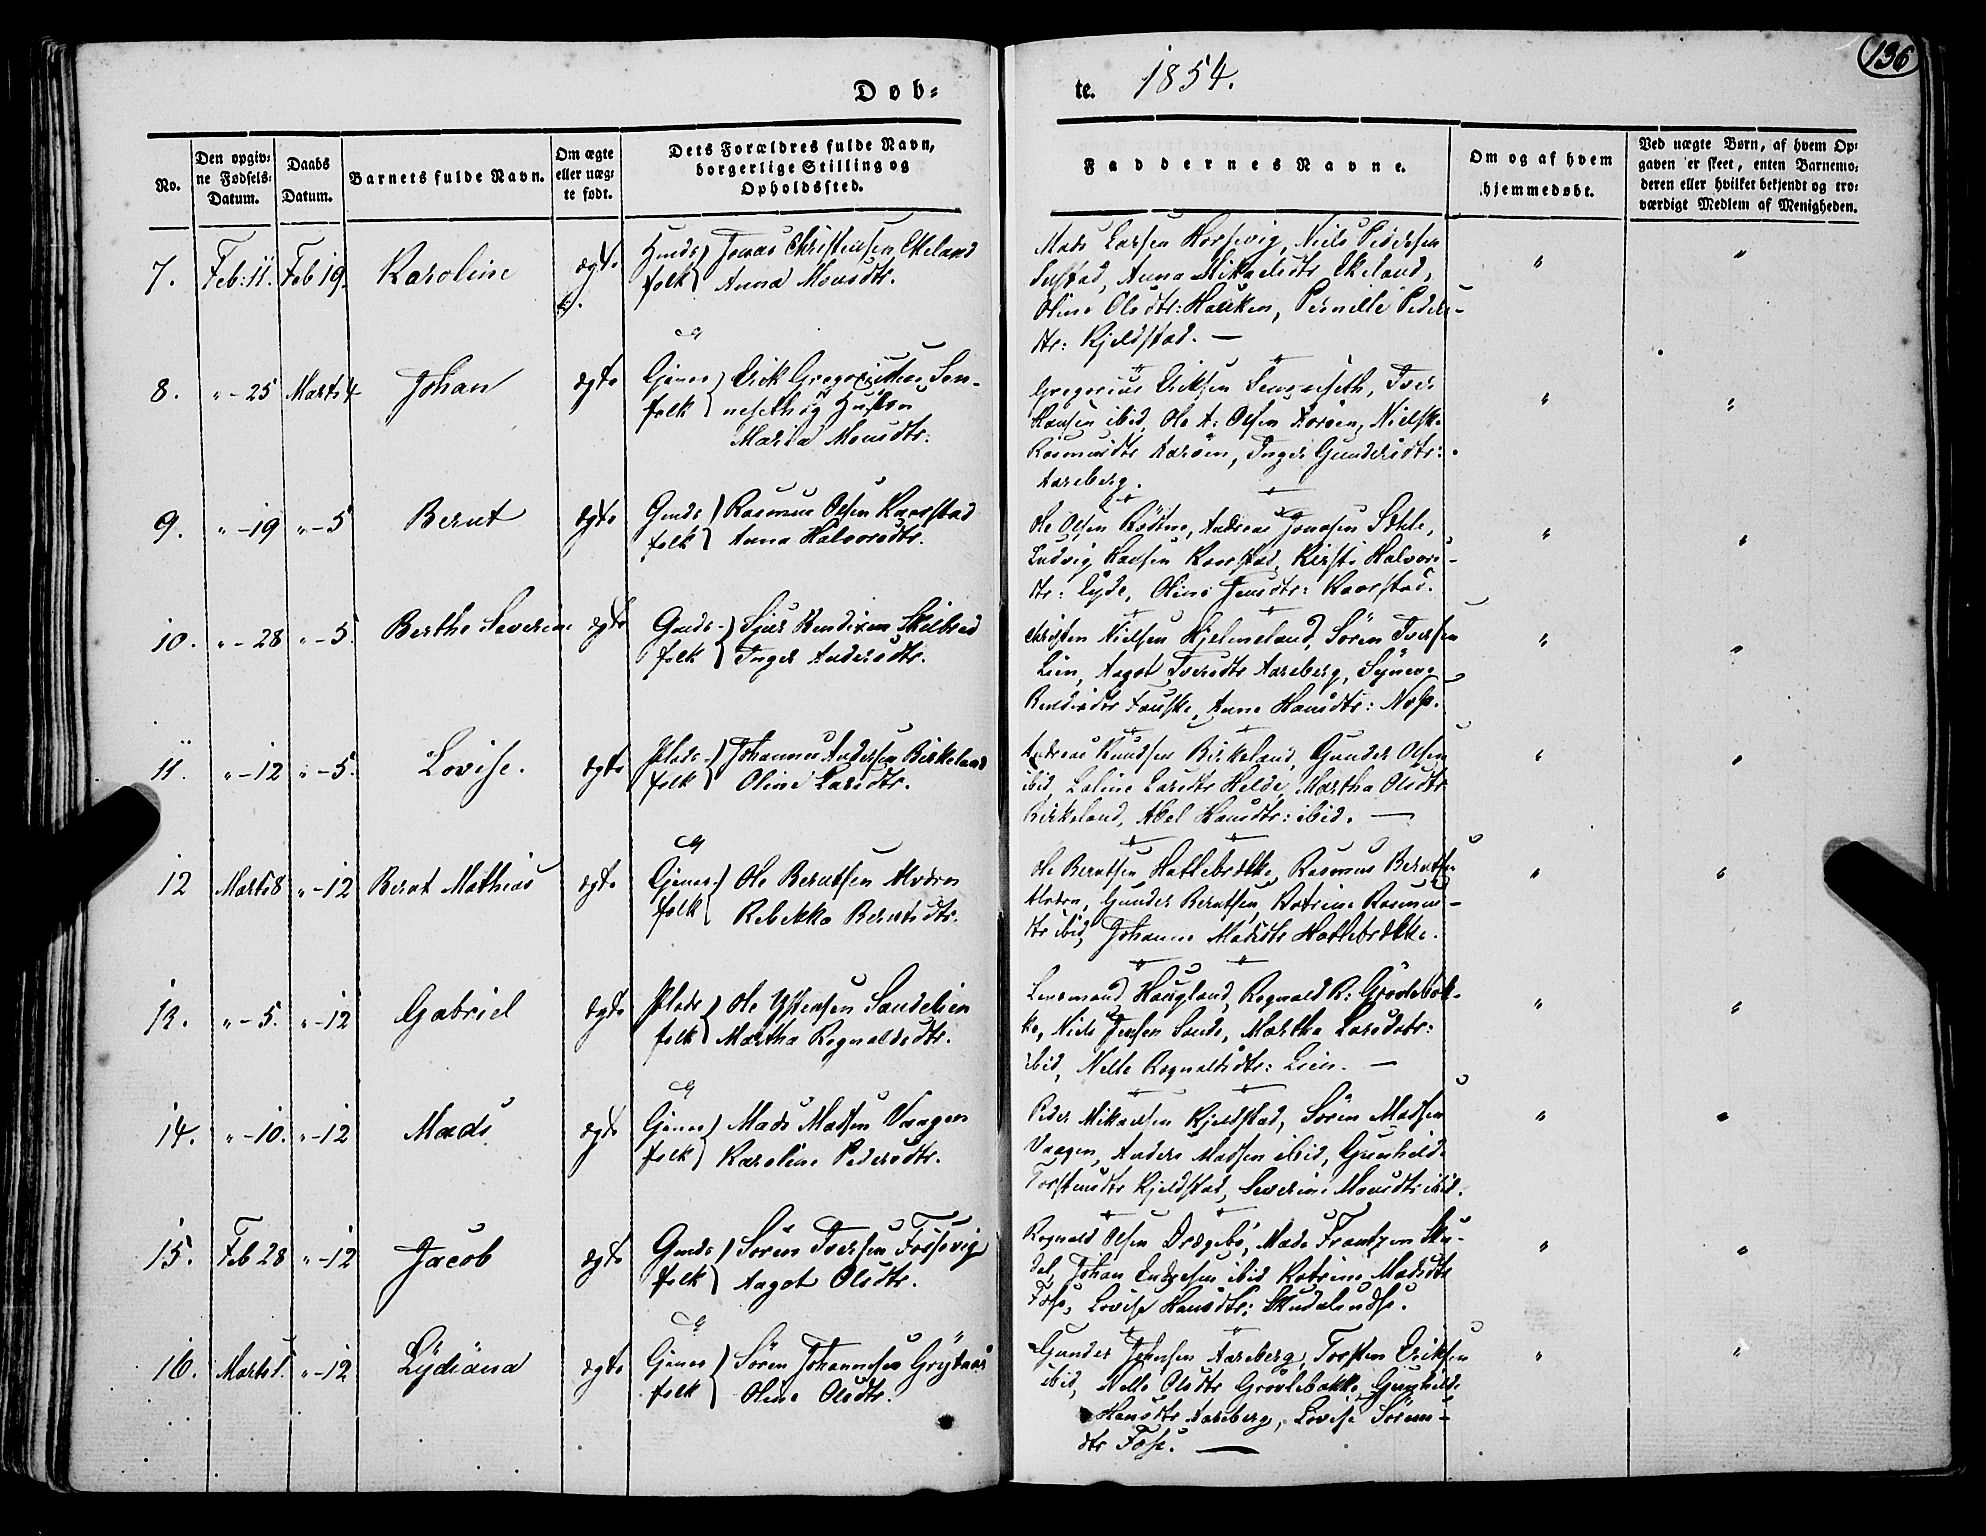 136
Døb=
te. 1854.
No.
Den opgiv=
ne Fødsels=
Datum.
Daabs
Datum.
Barnets fulde Navn.
Om ægte
eller uæg=
te født.
Dets Forældres fulde Navn,
borgerlige Stilling og
Opholdssted.
Faddernes Navne.
Om og af hvem
hjemmedøbt.
Ved uægte Børn, af hvem Op=
gaven er skeet, enten Barnemo=
deren eller hvilket bekjendt og tro=
værdigt Medlem af Menigheden.
7. Feb: 11. Feb 19. Karoline ægte
folk Jonas Christensen Ekeland
Anna Monsdtr.
Mads Larsen Horsevig, Niels
Anna Mikaelsdtr Ekeland,
Oline Olsdtr: Hauken, Pernille Peders-
dtr: Kjeldstad. —
8. " - 25 Marts 4 Johan ægte
Gjener Erik
folk
Maria Monsdtr:
Gregorius Eriksen Senneseth, Iver
Hansen ibid, Ole A: Olsen Aaröen,
Rasmusdtr Aaröen, Inger Gundersdtr:
Aareberg.
9. " - 19 " - 5 Bernt ægte
Gmds Rasmus Olsen Kaarstad
folk Anna Halvorsdtr.
Ole Olsen Andreas Jonasen
Ludvig Hansen Kaarstad, Kirsti Halvors-
dtr: Oline Jensdtr: Kaarstad.
10. " - 28 " - 5. Berthe Severine ægte
Gmds- Sjur Bendixen Skilbred
folk Inger Andersdtr.
Christen Nielsen Hjelmeland, Sören Iversen
Lien, Aagot Iversdtr Aareberg, Synneve
Fauske, Anne Hansdtr:
11. " - 12 " - 5. Lovise. ægte
Plads- Johannes Andersen Birkeland
folk Oline Larsdtr.
Andreas Knudsen Birkeland, Gunder Olsen
ibid, Larsdtr Helde, Martha Olsdtr
Birkeland, Abel Hansdtr: ibid. —
12 Marts 8 " - 12 Bernt Mathias ægte
Gjener- Ole Berntsen Alværen
folk Rebekka Berntsdtr.
Ole Berntsen Hattebrække, Rasmus Berntsen
Gunder Berntsen, Katrine Rasmus-
dtr ibid, Johanne Madsdtr Hattebrække.
13. " - 5. " - 12 Gabriel ægte
Plads Ole Sandelien
folk Martha Rognaldsdtr.
Lensmand Haugland, Rognald R: Grövlebak-
ke, Niels Jensen Sande, Martha Larsdatr:
ibid, Nelle Rognaldsdtr: Lien. —
14. " - 10. " - 12 Mads ægte
Gjener Mads Madsen Vaagen
folk Karoline Pedersdtr.
Peder Mikaelsen Kjeldstad, Sören Madsen
Vaagen, Anders Madsen ibid, Gunhilde
Torstensdtr Kjeldstad, Severine Monsdtr ibid.
15. Feb 28 " - 12 Jacob ægte
Gmds Sören Iversen Fossevig
folk Aagot Olsdtr.
Rognald Olsen Drægebö, Mads Frantzen Sku-
dal, Johan ibid Katrine Madsdtr
Fosse, Lovise Hansdtr:
16. Marts 1. " - 12 Lydiana ægte
Gjener Sören Johannesen Grytaas
folk Oline Olsdtr.
Gunder Jensen Aareberg, Torsten Eriksen
ibid, Nelle Olsdtr Grövlebakke, Gunhilde
Hansdtr Aareberg, Lovise Sörens-
dtr Fosse. —